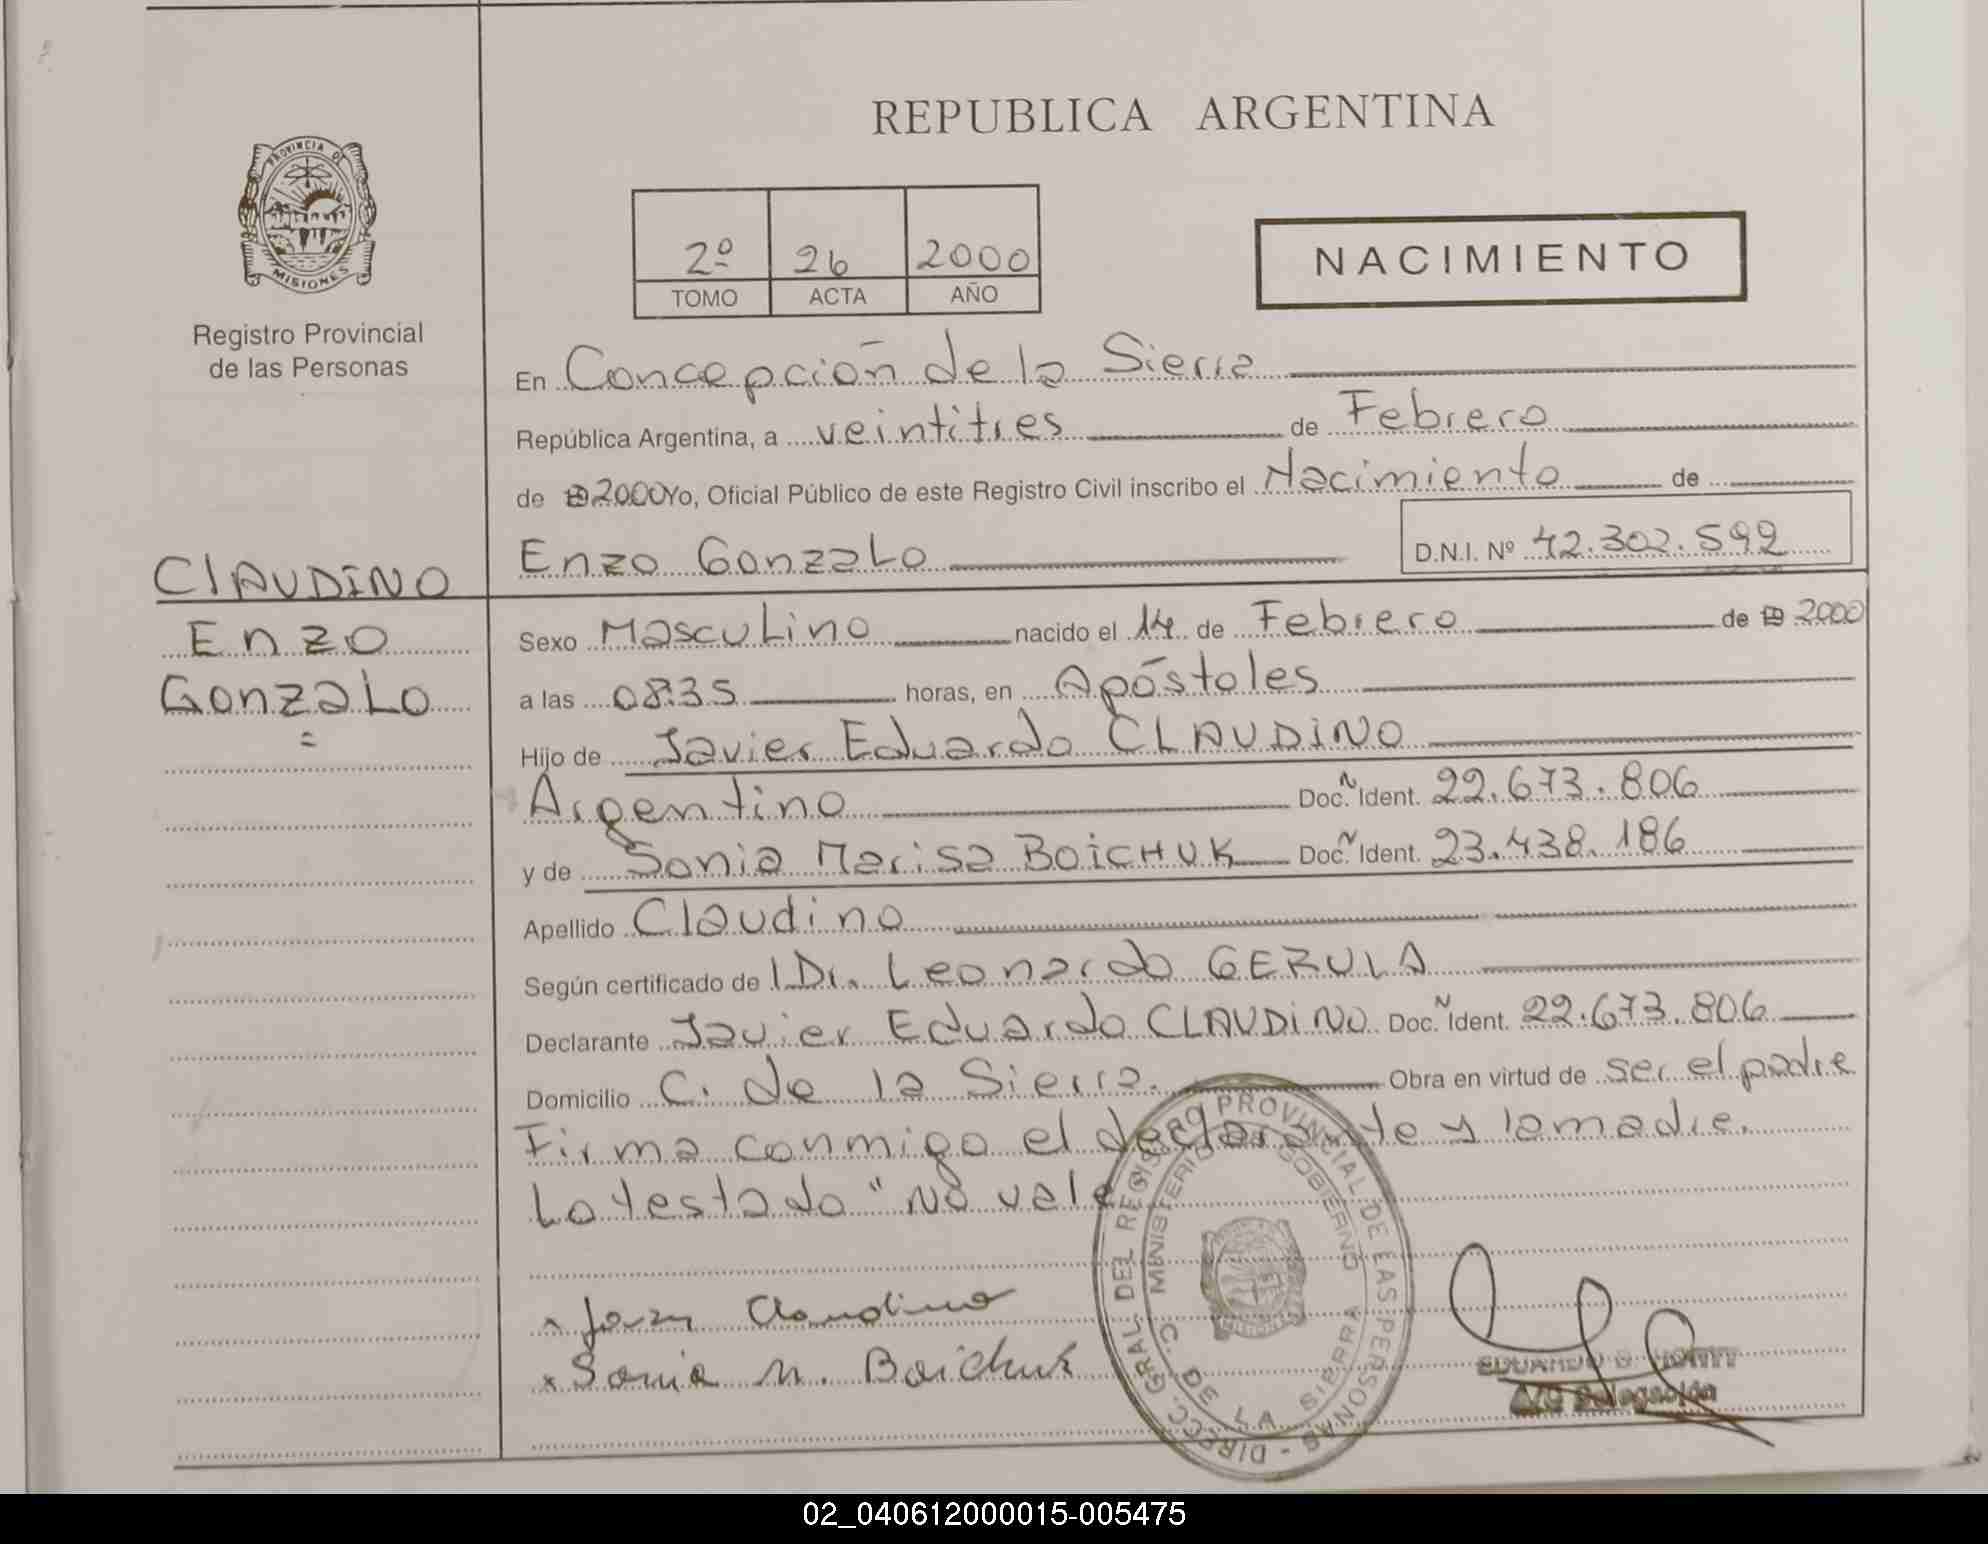 REPUBLICA ARGENTINA
PROVINCIA DE
MISIONES
Registro Provincial
de las Personas
2º 26 2000
TOMO ACTA AÑO
NACIMIENTO
En Concepción de la Sierra
República Argentina, a veintitres de Febrero
de 2000 Yo, Oficial Público de este Registro Civil inscribo el Nacimiento de
Enzo Gonzalo D.N.I. Nº 42.302.592
CLAUDINO
Enzo
Gonzalo
Sexo Masculino nacido el 14 de Febrero de 2000
a las 08:35 horas, en Apóstoles
Hijo de Javier Eduardo CLAUDINO
Argentino Doc. Ident. 22.673.806
y de Sonia Marisa BOICHUK Doc. Ident. 23.438.186
Apellido Claudino
Según certificado de Dr. Leonardo GERULA
Declarante Javier Eduardo CLAUDINO Doc. Ident. 22.673.806
Domicilio C. de la Sierra. Obra en virtud de ser el padre
Firma conmigo el declarante y la madre.
Lo testado "No vale
Claudino
Sonia M. Boichuk
DIRECC. GRAL. DEL REGISTRO PROVINCIAL DE LAS PERSONAS -
MINISTERIO GOBIERNO
C. DE LA SIERRA
EDUARDO
A/C Delegación
02_040612000015-005475